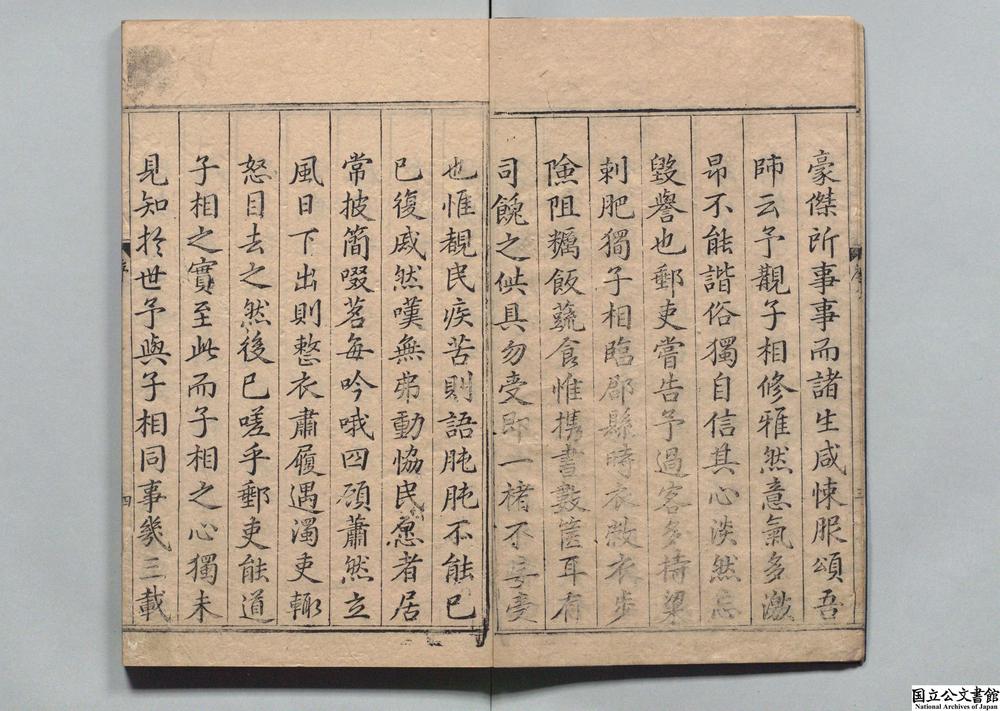 豪傑所事事而諸生咸悚服頌吾
師云予覩子相修雅然意氣多激
昂不能諧俗獨自信其心淡然忘
毀譽也郵吏嘗告予過客多持粱
刺肥獨子相臨郡縣時衣敝衣步
險阻糲飯蔬食惟携書數篋耳有
司餽之供具勿受即一楮不妄受
也惟覩民疾苦則語肫肫不能已
已復戚然嘆無弗動恤民急者居
常披簡啜茗每吟哦四顧蕭然立
風日下出則整衣肅履遇濁吏輙
怒目去之然後已嗟乎郵吏能道
子相之實至此而子相之心獨未
見知於世予與子相同事幾三載
序
三
四
国立公文書館
National Archives of Japan